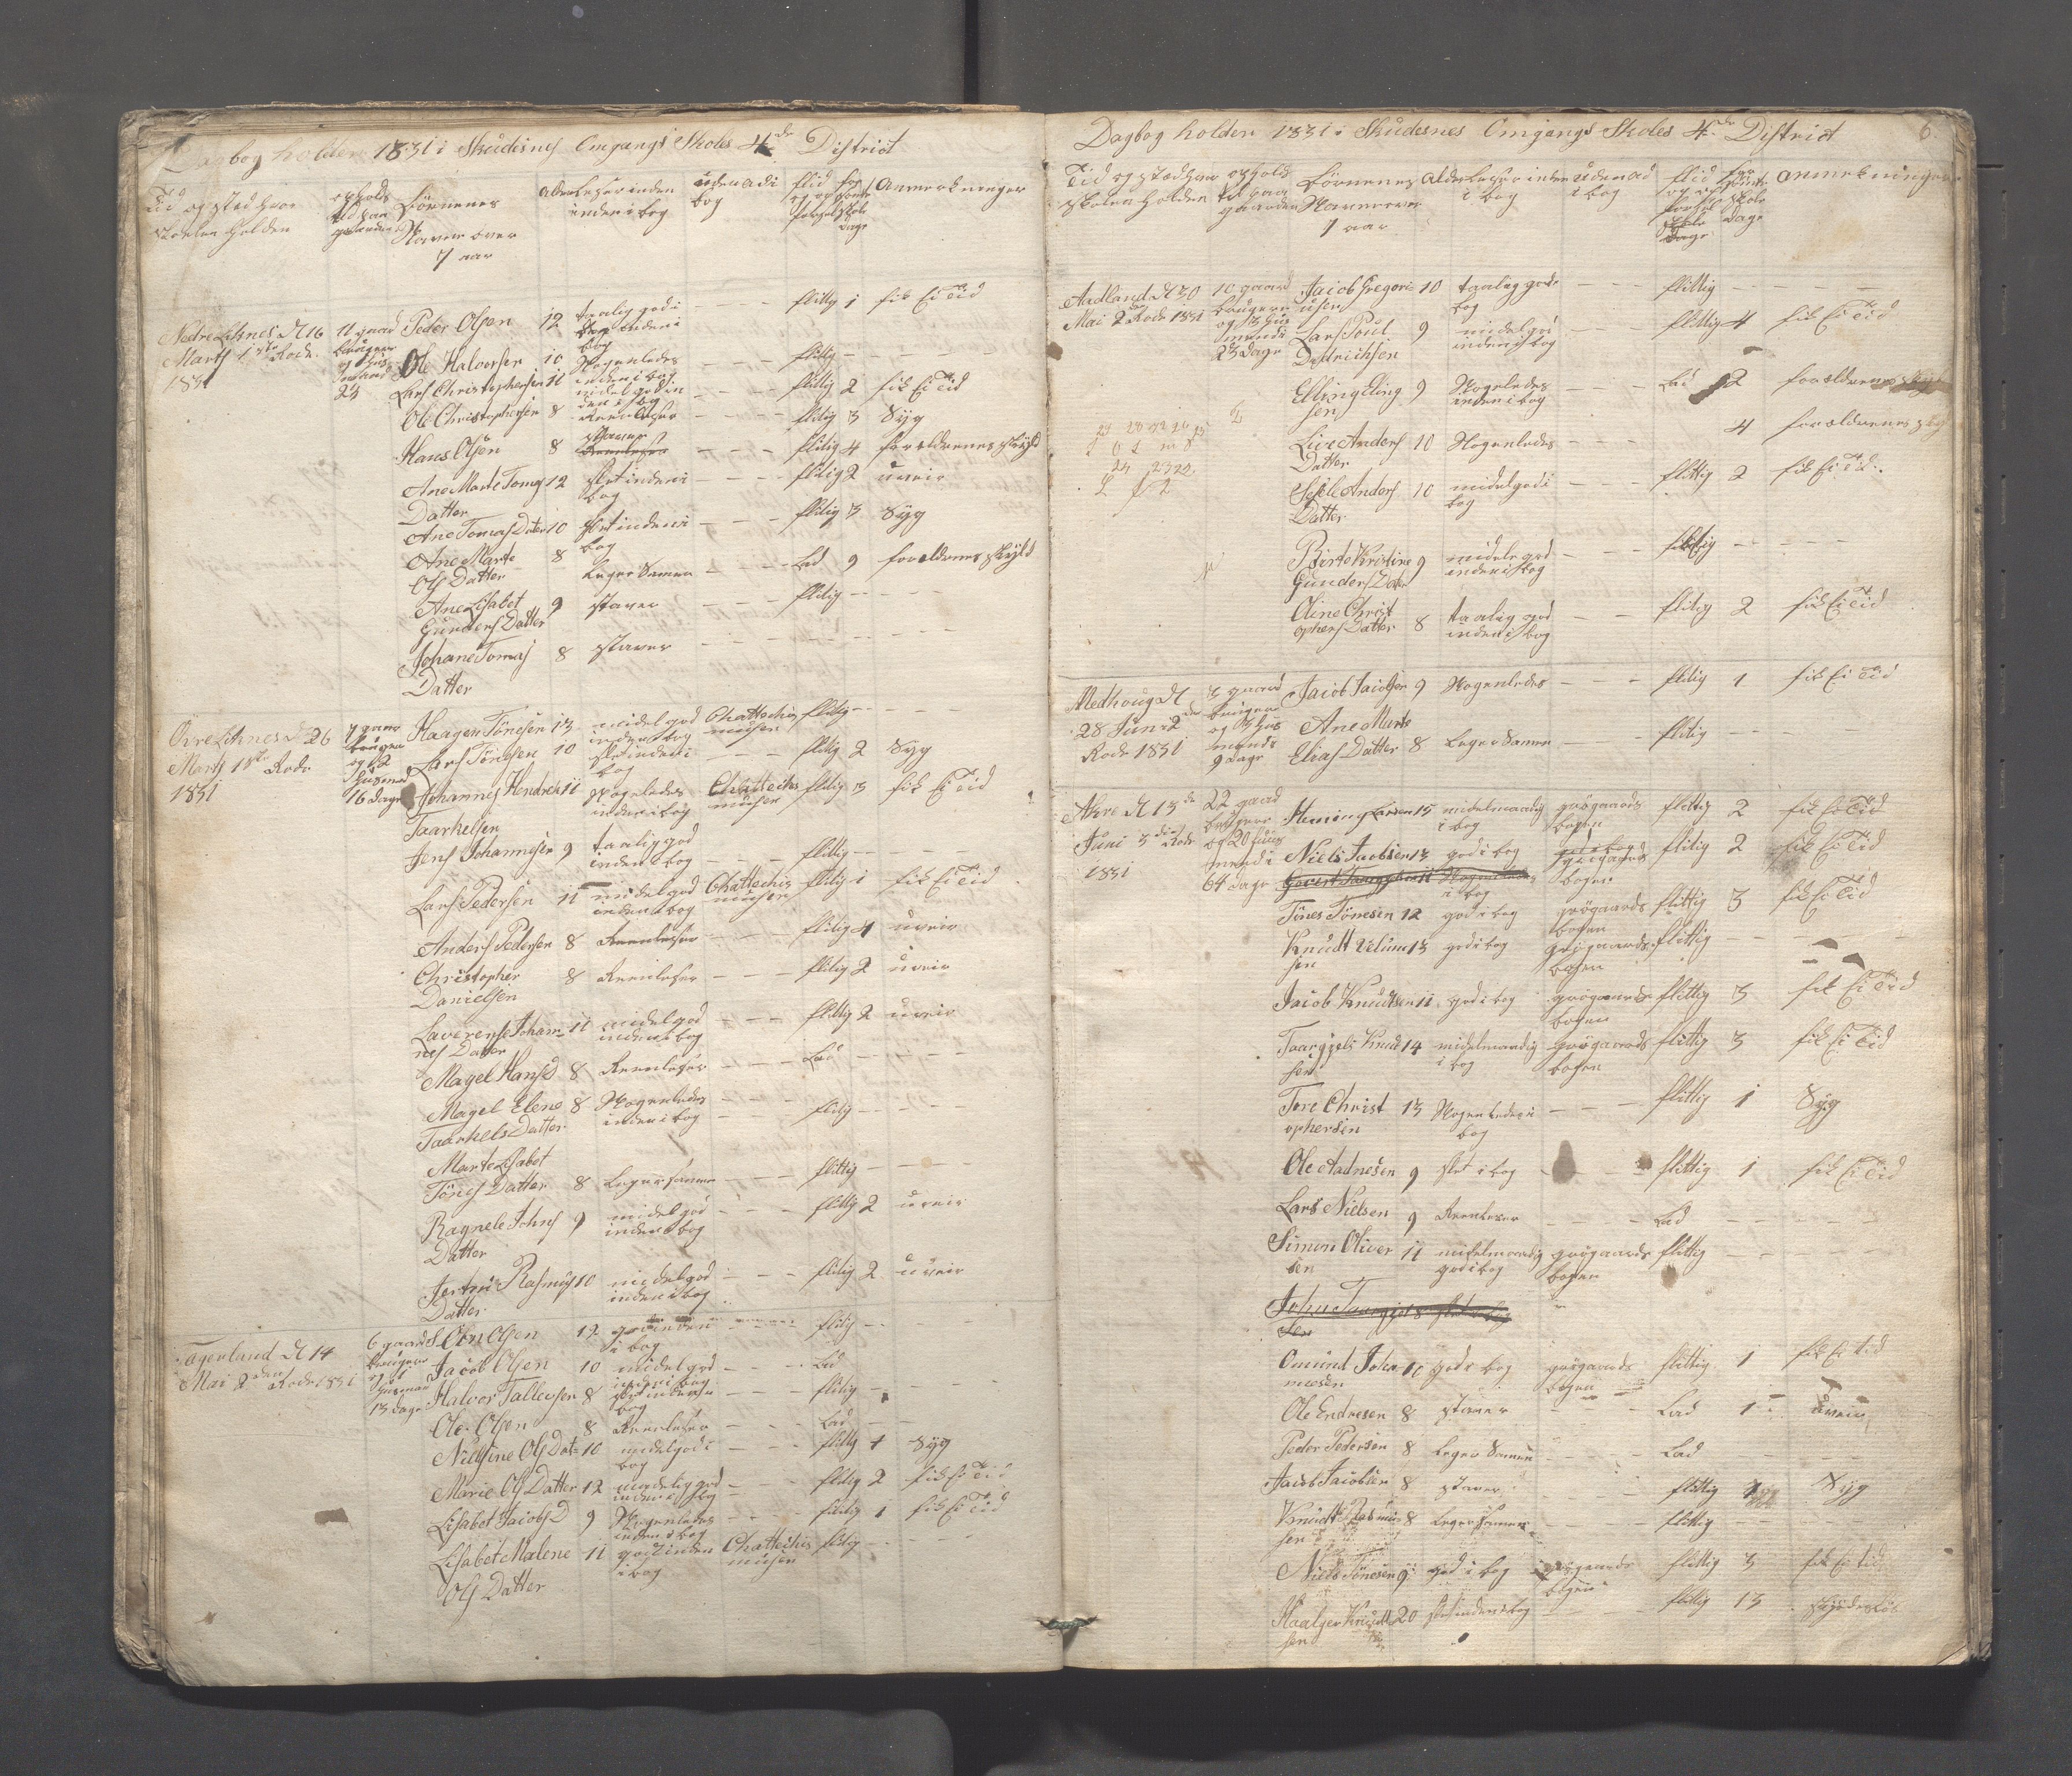 Dagbog holden 1831 i Skudesnes Omgangs Skoles 4de District
Tid og sted hvor skolen holden
opholds tid paa gaarden
Börnenes Navne over 7 aar
Alder
Læser inden i bog
uden ad i bog
flid og opførsel
forsömte skole dage
Anmerkninger
Nedre Liknes d 16 Marts 1ste Rode 1831
11 gaard brugere
Peder Olsen 12 taalig god i bog flittig 1 fik Ei Tid
Ole Halvorsen 10 Nogenledes inden i bog flittig
Lars Christophersen 11 midel god inden i bog flittig 2 fik Ei Tid
Ole Christophersen 8 Reenleser flitig 3 Syg
Hans Olsen 8 staver flitig 4 foreldrenes skyld
Ane Marte Tomas Datter 12 slet inden i bog flitig 2 uveir
Ane Tomas Dater 10 slet inden i bog flitig 3 Syg
Ane Marte Ols Datter 8 Leger Samen Lad 9 foreldrenes skyld
Ane Lisabet Gunders Datter 9 staver flitig
Johane Tomas Datter 8 staver
Övre Liknes d 26 Marts 1ste Rode 1831
7 gaard brugere og 2 Husmend 16 Dage
Haagen Tönesen 13 midel god inden i bog Chattechismusen flitig
Lars Tönesen 10 slet inden i bog flitig 2 Syg
Johannes Hendrek Taarkelsen 11 Nogeledes inden i bog Chattechismusen flitig 3 fik Ei Tid
Jens Johannesen 9 taalig god inden i bog flittig
Lars Pedersen 11 midel god inden i bog Chattechismusen flitig 1 fik Ei Tid
Anders Pedersen 8 Reenleser flitig 4 uveir
Christopher Danielsen 8 Reenleser flitig 2 uveir
Laverense Johannes Datter 11 midel god inden i bog flittig 2 uveir
Magel Hans D 8 Reenleser Lad
Magel Elene Taarkels Datter 8 Nogenledes inden i bog flitig
Marte Lisabet Tönes Datter 8 Leger samen flittig
Ragnele Johns Datter 9 midel god inden i bog flittig 2 uveir
Rasmus Datter 10 midel god inden i bog flitig 2 uveir
d 14 Mai 2den Rode 1831
6 gaard brugere og 1 Husman 13 dage
Olsen 12 god inden i bog flitig
Jacob Olsen 10 midel god inden i bog Lad
Halvor Tallevsen 8 slet inden i bog flitig
Ole Olsen 8 Reenleser Lad
Nilsine Ols Dat 10 midel god i bog flittig 1 Syg
Marie Ols Datter 12 god inden i bog flitig 2 fik Ei Tid
Lisabet Jacobs D 9 Nogenledes inden i bog flitig 1 fik Ei Tid
Lisabet Malene Ols Datter 11 god inden i bog Chattechismusen flitig
6
Dagbog holden 1831 i Skudesnes Omgangs Skoles 4de District
Tid og sted hvor skolen Holden
ophols tid paa gaarden
Börnenes Navne over 7 aar
Alder
Læser inden i bog
uden ad i bog
flid og opførsel
forsömte skole Dage
anmerkninger
Aadland d 30 Mai 2den Rode 1831
10 gaard brugere og 3 Husmend 23 Dage
Jacob Gregoriusen 10 taalig god i bog flittig
Lars Poul Didrichsen 9 midel god inden i bog flittig 4 fik Ei Tid
Elling Elingsen 9 Nogeledes inden i bog Lad 2 foreldrenes skyld
Live Anders Datter 10 Nogenledes 4 foreldrenes skyl
Anders Datter 10 midel god i bog flittig 2 fik Ei Tid
Birte Kristine Gunders Dater 9 midele god inden i bog flittig
Oline Christophers Datter 8 taalig god inden i bog flitig 2 fik Ei Tid
Medhoug d 28 Juni 2de Rode 1831
3 gaard brugere og 3 Husmend 9 Dage
Jacob Jacobsen 9 Nogenledes flitig 1 fik Ei Tid
Ane Marte Elias Datter 8 Leger Samen flitig
Ahre d 13de Juni 3die Rode 1831
22 gaard brugere og 20 Husmend i 64 dage
Heming Larsen 15 midelmaadig i bog grögaards bogen flittig 2 fik Ei Tid
Niels Jacobsen 13 god i bog grögaards bogen flitig 2 fik Ei Tid
Tönes Tönesen 12 god i bog grögaards bogen flittig 3 fik Ei Tid
Knudt Viliumsen 13 god i bog grögaards bogen flittig
Jacob Knudtsen 11 god i bog grögaards bogen flittig 3 fik Ei Tid
Taargiels Knudsen 14 midelmaadig i bog grögaards bogen flittig 3 fik Ei Tid
Tore Christophersen 13 Nogenledes i bog flittig 1 Syg
Ole Aadnesen 9 slet i bog flittig 1 fik Ei Tid
Lars Nielsen 9 Reenleser Lad
Simon Oliversen 11 midelmaadig god i bog grögaards bogen flittig
Omund Johannesen 10 god i bog grögaards bogen flittig 1 fik Ei tid
Ole Endresen 8 staver Lad 1 Uveir
Peder Pedersen 8 Leger Samen Lad
Jacob Jacobsen 8 staver flittig Syg
Knudt Rasmussen 8 Leger Samen flittig
Niels Tönesen 9 god i bog grögaards bogen flittig 3 fik Ei tid
Knudtsen 20 slet inden i bog flitig 13